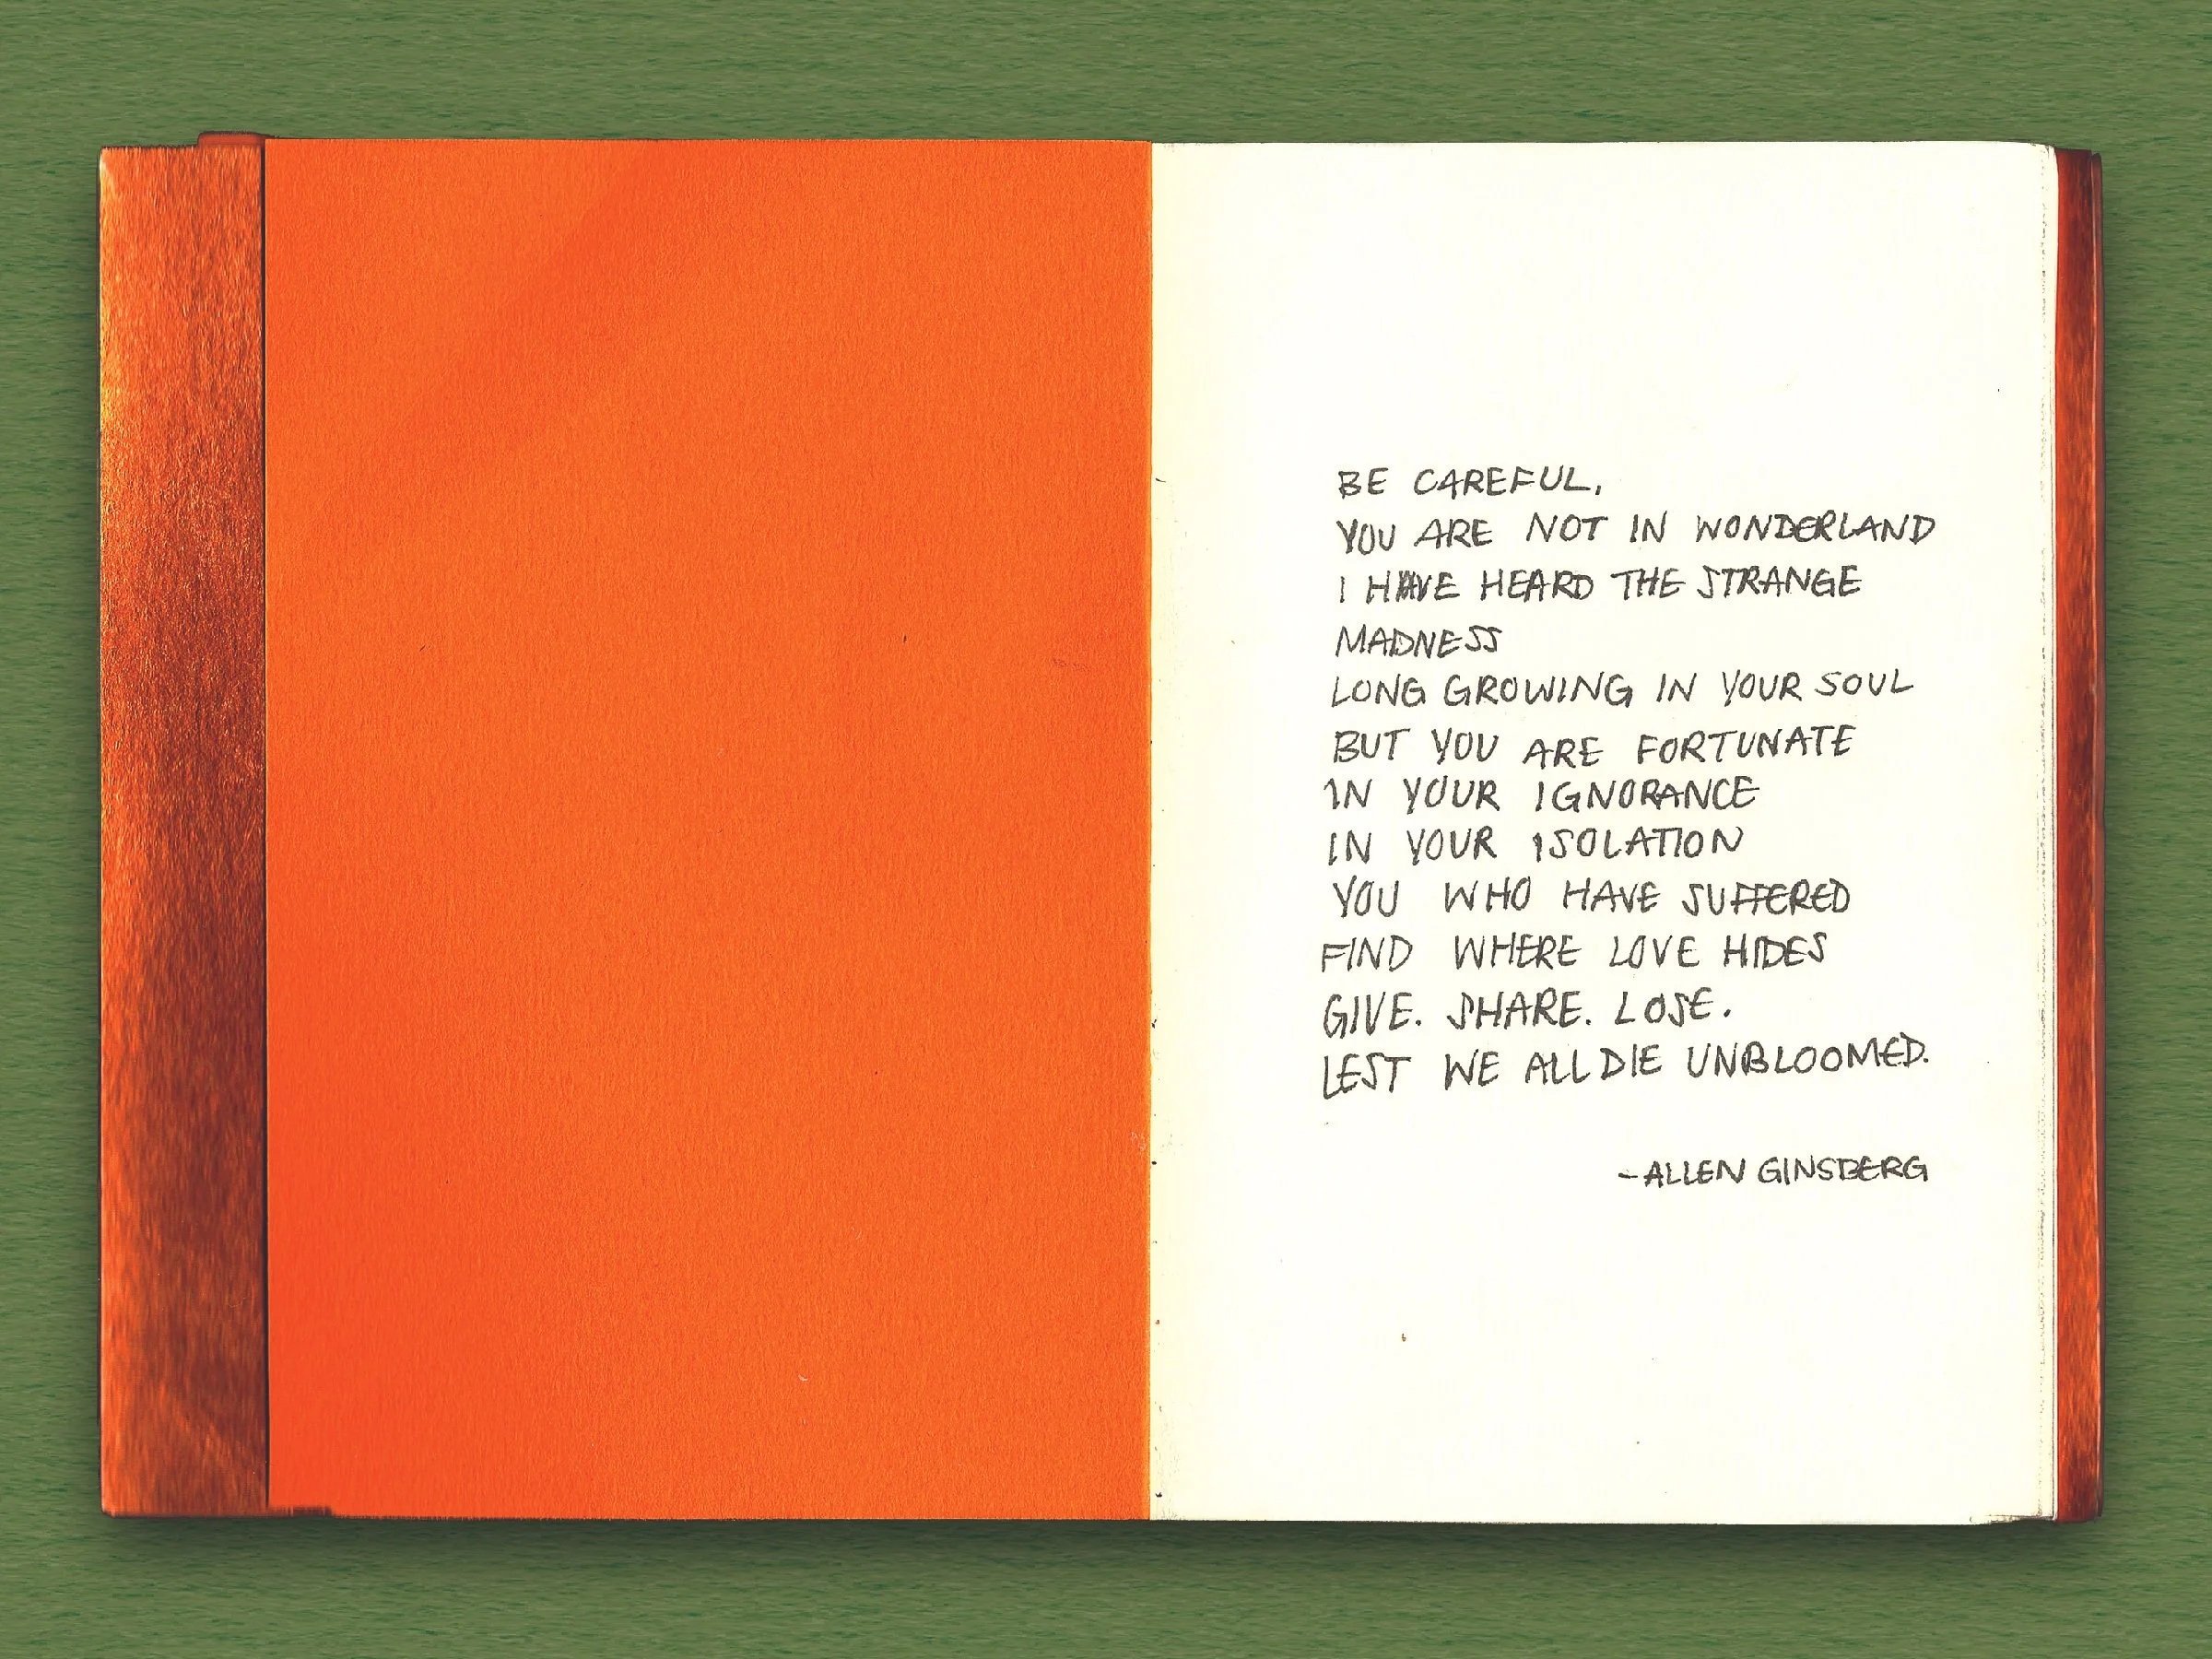 BE CAREFUL,
YOU ARE NOT IN WONDERLAND
I HAVE HEARD THE STRANGE
MADNESS
LONG GROWING IN YOUR SOUL
BUT YOU ARE FORTUNATE
IN YOUR IGNORANCE
IN YOUR ISOLATION
YOU WHO HAVE SUFFERED
FIND WHERE LOVE HIDES
GIVE. SHARE. LOSE.
LEST WE ALL DIE UNBLOOMED.
-ALLEN GINSBERG